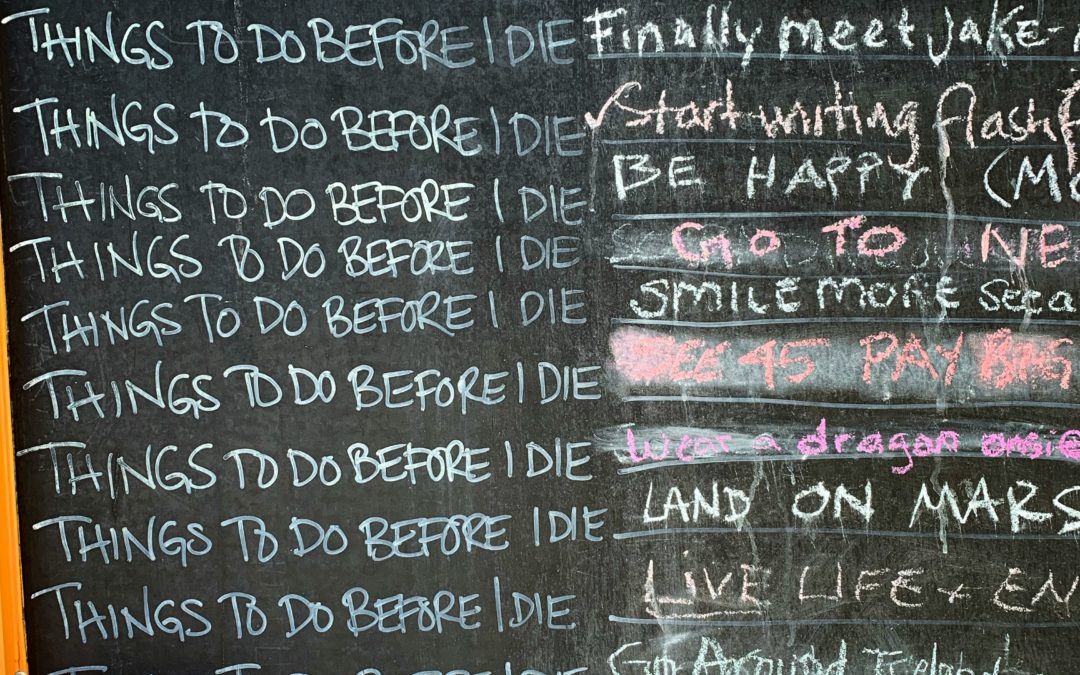 THINGS TO DO BEFORE I DIE Finally meet JAKE-
THINGS TO DO BEFORE I DIE Start writing flash
THINGS TO DO BEFORE I DIE BE HAPPY (MO
THINGS TO DO BEFORE I DIE GO TO NE
THINGS TO DO BEFORE I DIE SMILE MORE See a
THINGS TO DO BEFORE I DIE SEE 45 PAY
THINGS TO DO BEFORE I DIE Wear a dragon onsie
THINGS TO DO BEFORE I DIE LAND ON MARS
THINGS TO DO BEFORE I DIE LIVE LIFE + EN
THINGS TO DO BEFORE I DIE Go Around Ireland